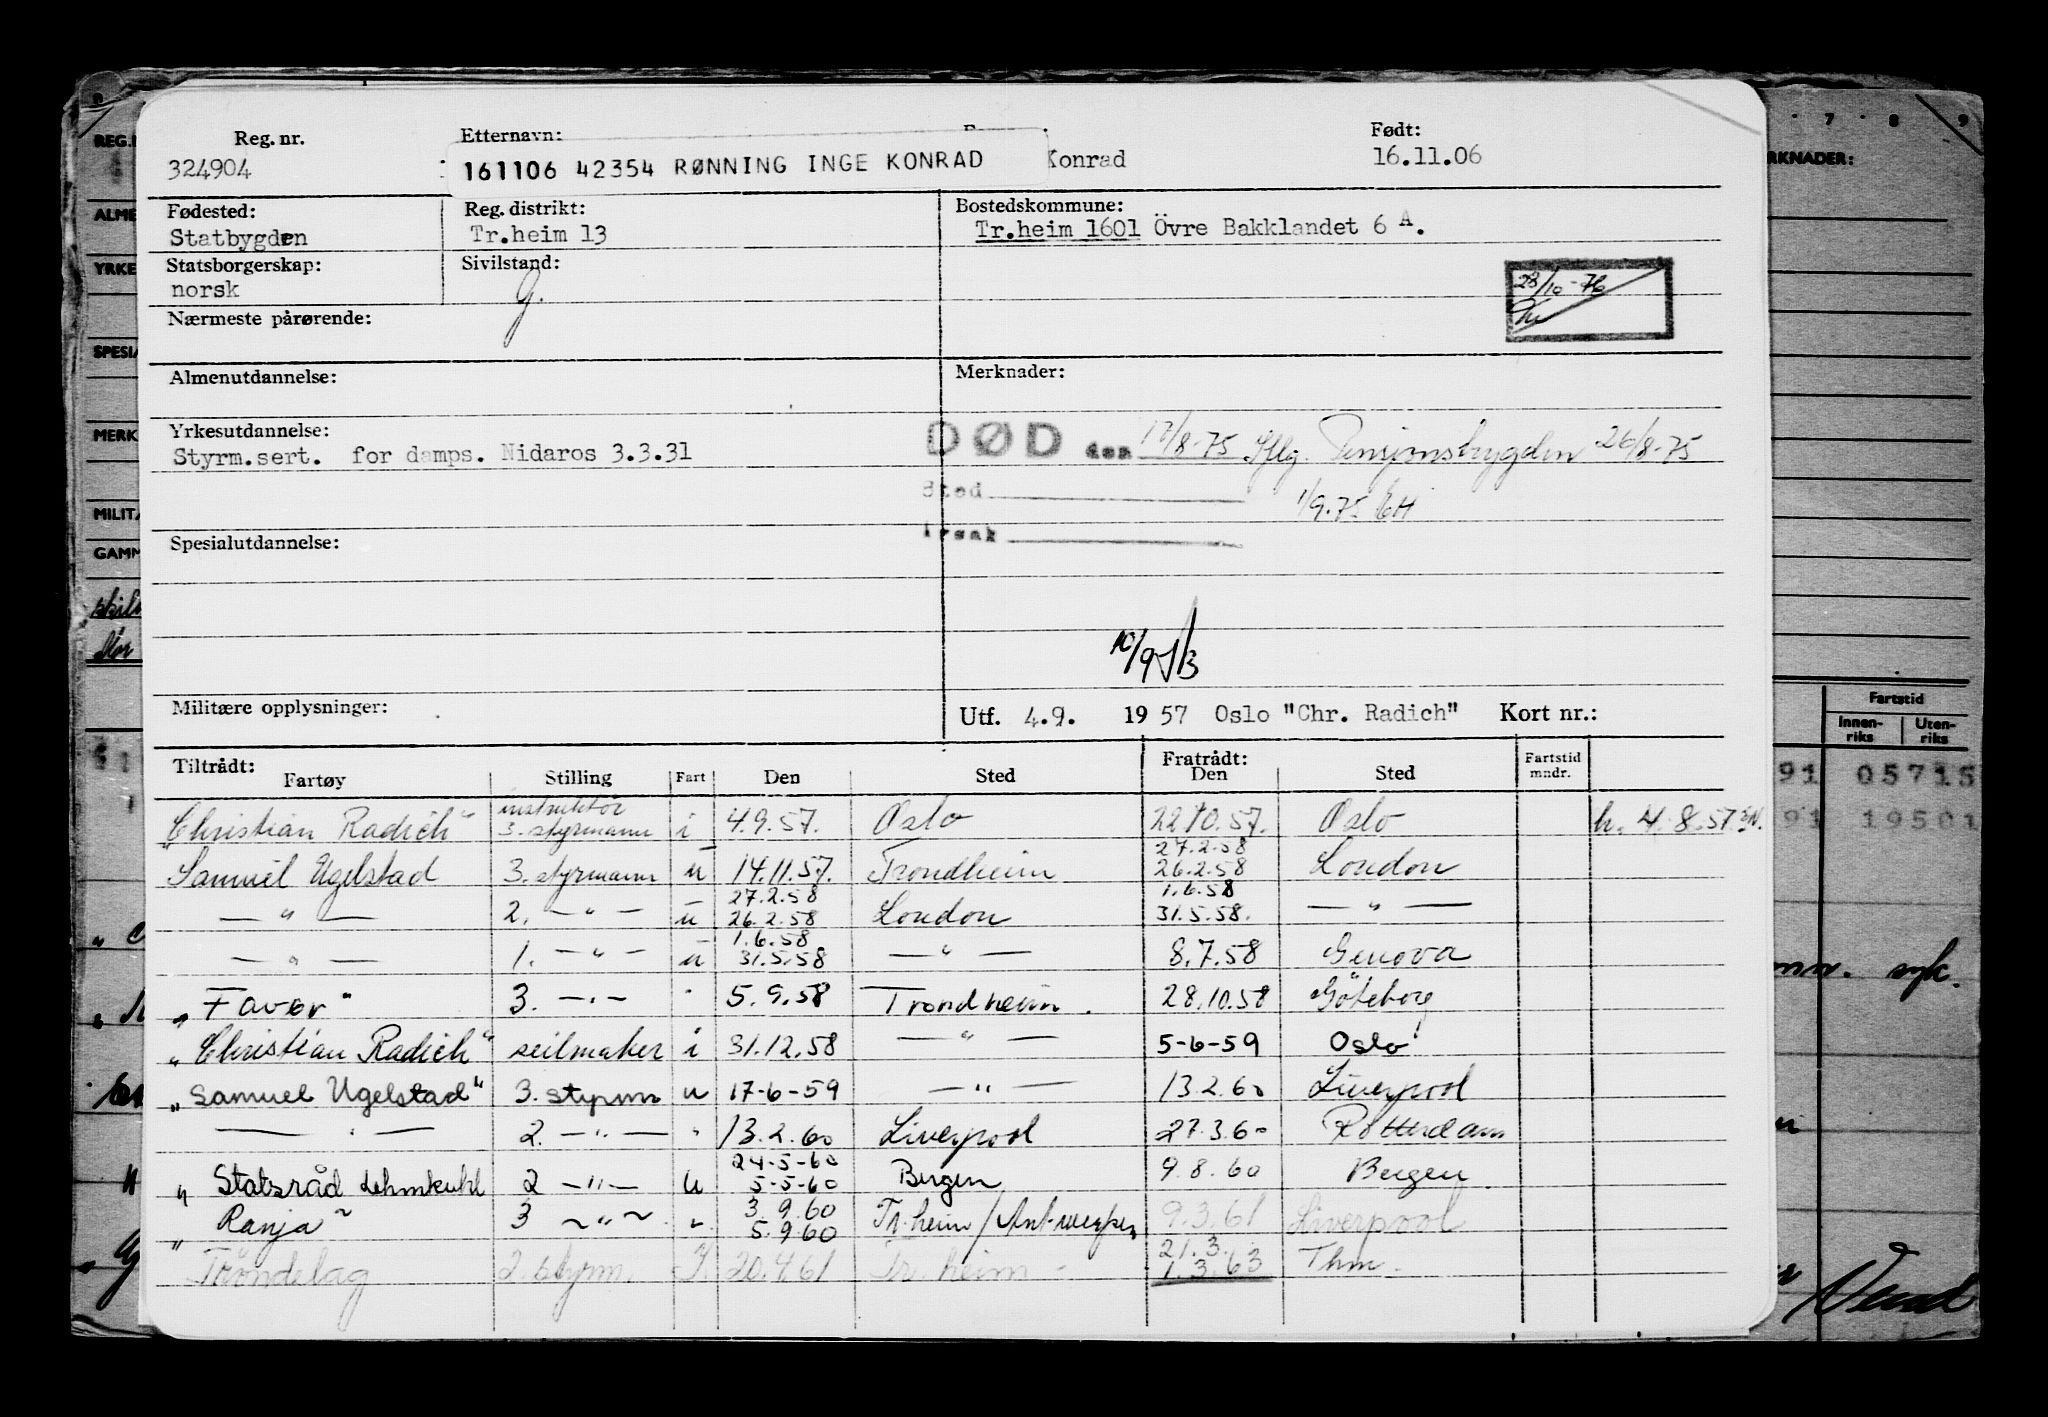 Reg. nr. Etternavn: Født:
324904 161106 42354 RØNNING INGE KONRAD Konrad 16.11.06
Fødested: Reg. distrikt: Bostedskommune:
Statbygden Tr.heim 13 Tr.heim 1601 Övre Bakklandet 6 A.
Statsborgerskap: Sivilstand:
norsk g. 28/10-76
Nærmeste pårørende:
Almenutdannelse: Merknader:
Yrkesutdannelse: DØD den 17/8-75 Iflg. Pensjonsbygden 26/8-75
Styrm.sert. for damps. Nidaros 3.3.31
Sted
1/9.75 EH
Spesialutdannelse: Årsak
10/9
Militære opplysninger: Utf. 4.9. 1957 Oslo "Chr. Radich" Kort nr.:
Tiltrådt: Fratrådt: Fartstid
Fartøy Stilling Fart Den Sted Den Sted mndr.
instruktör
Christian Radich" 3. styrmann i 4.9.57. Oslo 22.10.57. Oslo h. 4.8.57
27.2.58
Samuel Ugelstad 3. styrmann u 14.11.57. Trondheim 26.2.58 London
27.2.58 1.6.58
— " — 2. — " — u 26.2.58 London 31.5.58. — " —
1.6.58
— " — 1. — " — u 31.5.58 — " — 8.7.58 Genova
"Favor" 3. — " — " 5.9.58 Trondheim. 28.10.58 Göteborg
"Christian Radich" seilmaker i 31.12.58 — " — 5-6-59 Oslo
"Samuel Ugelstad" 3. styrm u 17-6-59 — " — 13.2.60 Liverpool
— " — 2. — " — " 13.2.60 Liverpool 27.3.60 Rotterdam
24-5-60
" Statsråd Lehmkuhl 2 — " — u 5-5-60 Bergen 9.8.60 Bergen
3.9.60
" Ranja" 3 — " — " 5.9.60 Tr.heim/Antwerpen 9.3.61 Liverpool
21.3.
Tröndelag 2. styrm. I. 20.4.61 Tr.heim - 1.3.63 Thm.
REG.
ALME
YRKE
SPESIA
MERK
MILITÆ
GAMM
7 8 9
RKNADER:
Fartstid
Innen-riks Uten-riks
91 05715
91 19501
syk.